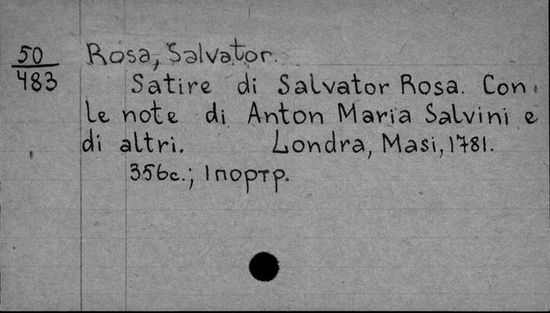 50
483
Rosa, Salvator.
Satire di Salvator Rosa. Con
le note di Anton Maria Salvini e
di altri. Londra, Masi, 1781.
356с.; 1 портр.